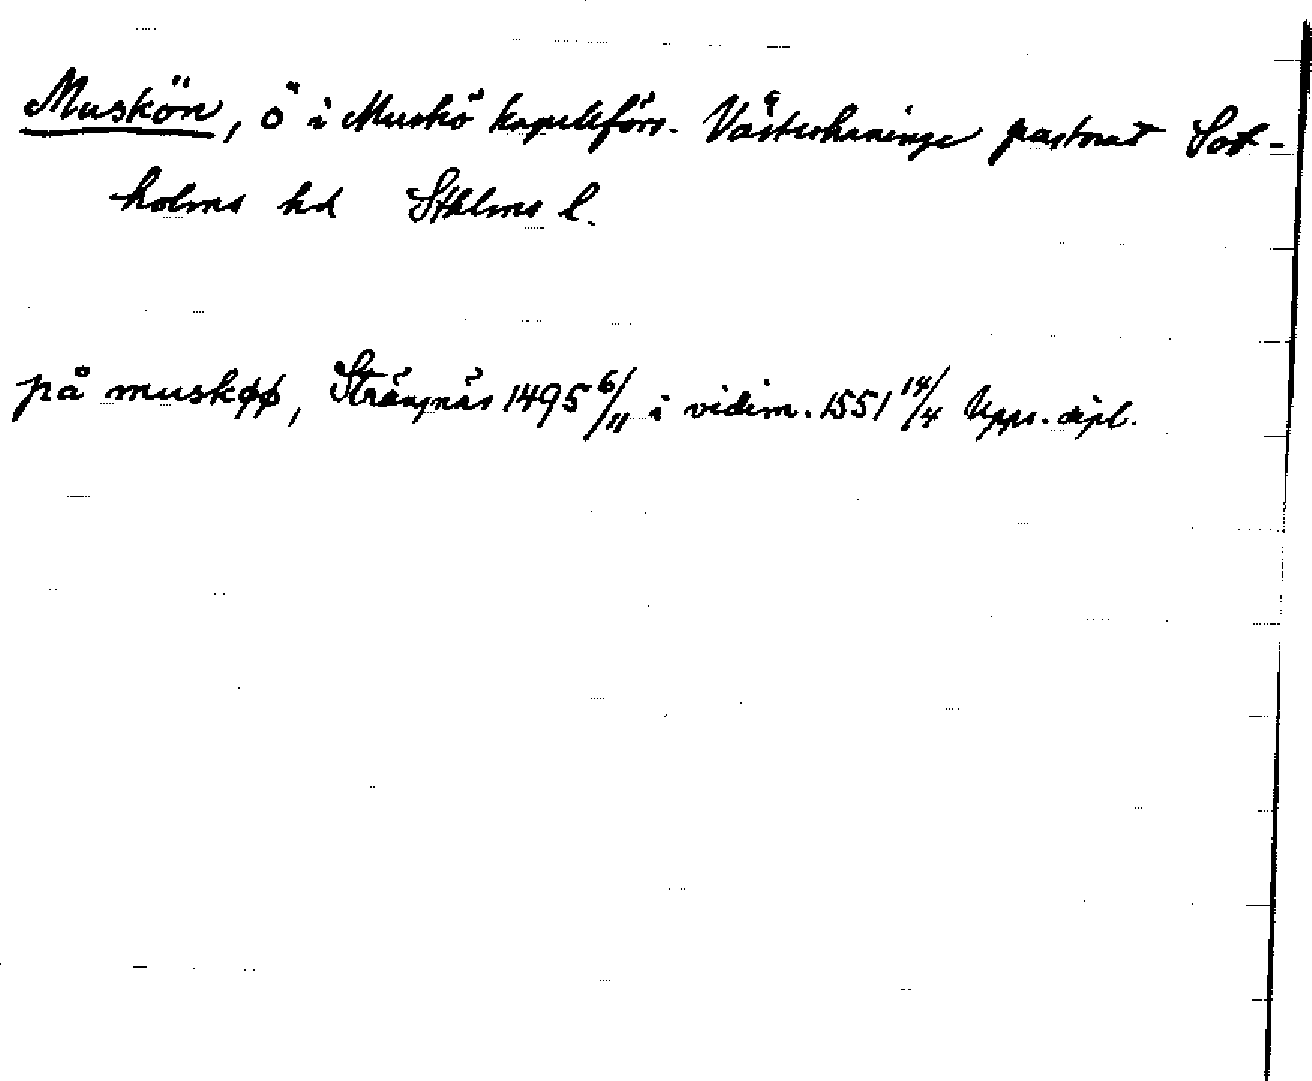 Muskön, ö i Muskö kapellförs. Västerhaninge pastorat Sot-
holms hd Sthlms l.
på muskøø, Strängnäs 1495 6/11 i vidim. 1551 14/4 Upps. dipl.